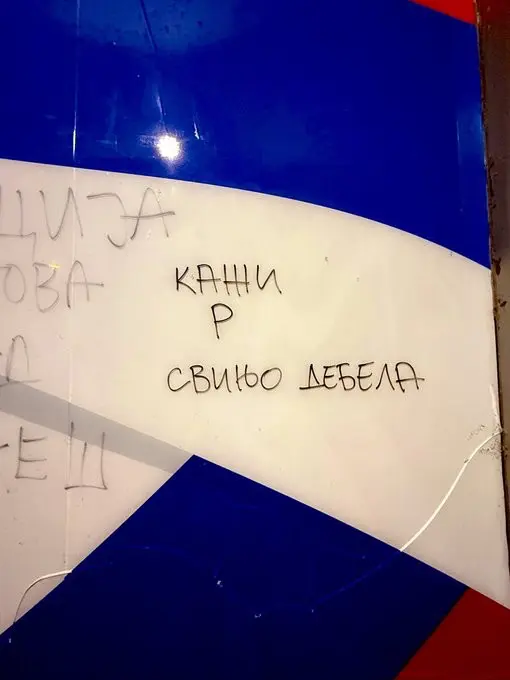 ЦИЈА
ОВА
КАЖИ
Р
СВИЊО ДЕБЕЛА
ЕШ